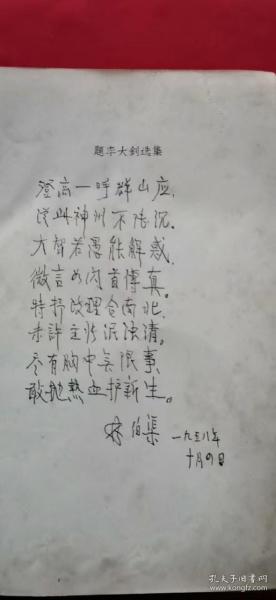 题李大钊选集
登高一呼群山应,
从此神州不陆沉.
大智若愚能解惑,
微言如闪首传真.
特持政理仓南北,
未许主张泯浊清.
尽有胸中无限事
敢抛热血护新生。
林伯渠 一九五八年
十月九日
孔夫子旧书网